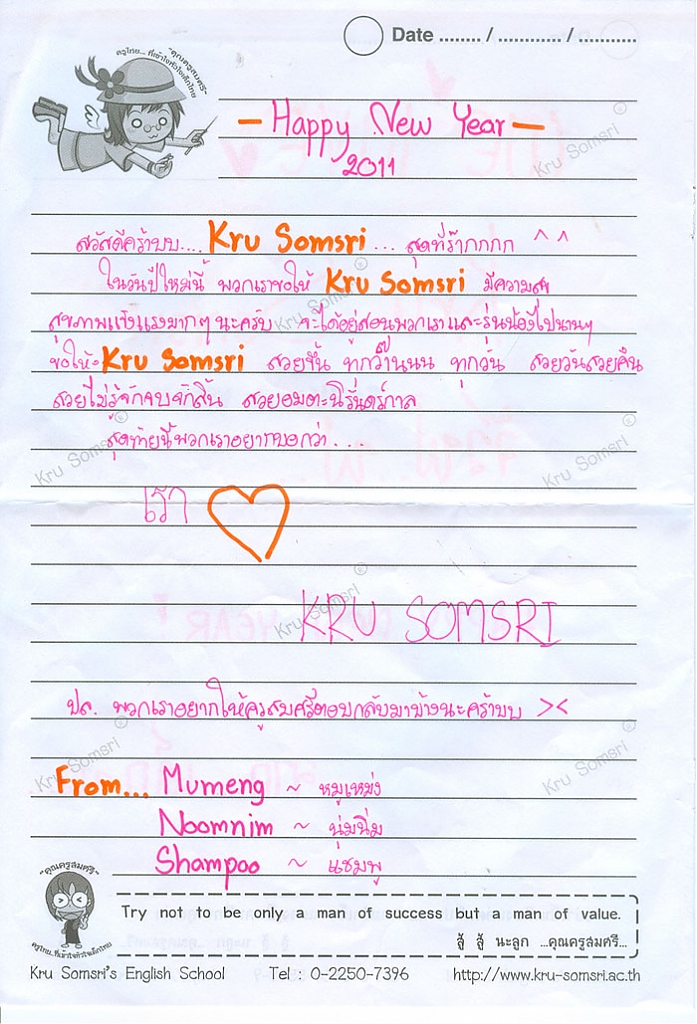 Date ........ / ............ / ...........
"คุณครูสมศรี"
ครูไทย... ที่เข้าใจหัวใจเด็กไทย
- Happy New Year -
2011
Kru Somsri ®
สวัสดีคร้าบบ.... Kru Somsri ... สุดที่ร๊ากกกก ^ ^
ในวันปีใหม่นี้ พวกเราขอให้ Kru Somsri มีความสุข
Kru Somsri ®
สุขภาพแข็งแรงมากๆ นะครับ จะได้อยู่สอนพวกเราและรุ่นน้องไปนานๆ
ขอให้ Kru Somsri สวยขึ้น ทุกว๊านนน ทุกวัน สวยวันสวยคืน
สวยไม่รู้จักจบจักสิ้น สวยอมตะนิรันดร์กาล
สุดท้ายนี้พวกเราอยากบอกว่า....
Kru Somsri Kru Somsri ®
เรา ♡
Kru Somsri ®
KRU SOMSRI
ปล. พวกเราอยากให้ครูสมศรีตอบกลับมาบ้างนะคร้าบบ ><
Kru Somsri ® Kru Somsri ®
From... Mumeng ~ หมูเหม่ง
Noomnim ~ นุ่มนิ่ม
Shampoo ~ แชมพู
"คุณครูสมศรี"
ครูไทย...ที่เข้าใจหัวใจเด็กไทย
Try not to be only a man of success but a man of value.
สู้ สู้ นะลูก ...คุณครูสมศรี...
Kru Somsri's English School Tel : 0-2250-7396 http://www.kru-somsri.ac.th